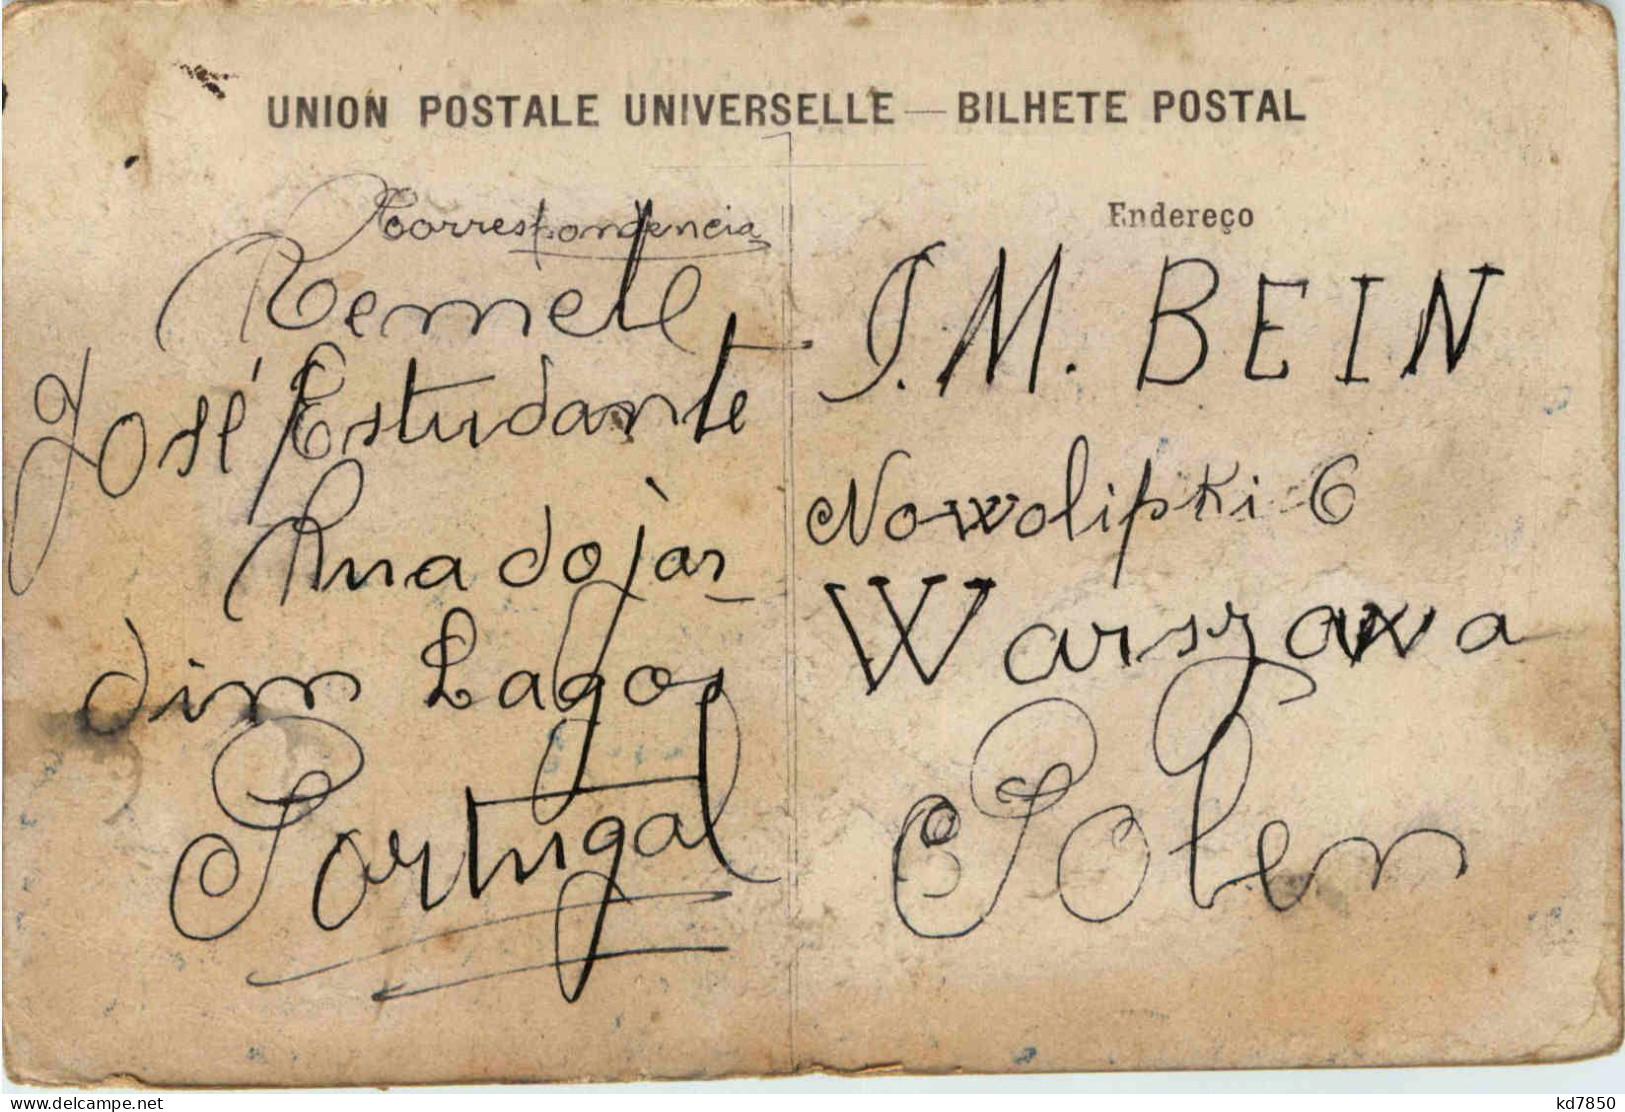 UNION POSTALE UNIVERSELLE — BILHETE POSTAL
Correspondencia
Remete
José Estudante
Rua do jar
dim Lagos
Portugal
Endereço
J. M. BEIN
Nowolipki 6
Warszawa
Polen
www.delcampe.net
kd7850